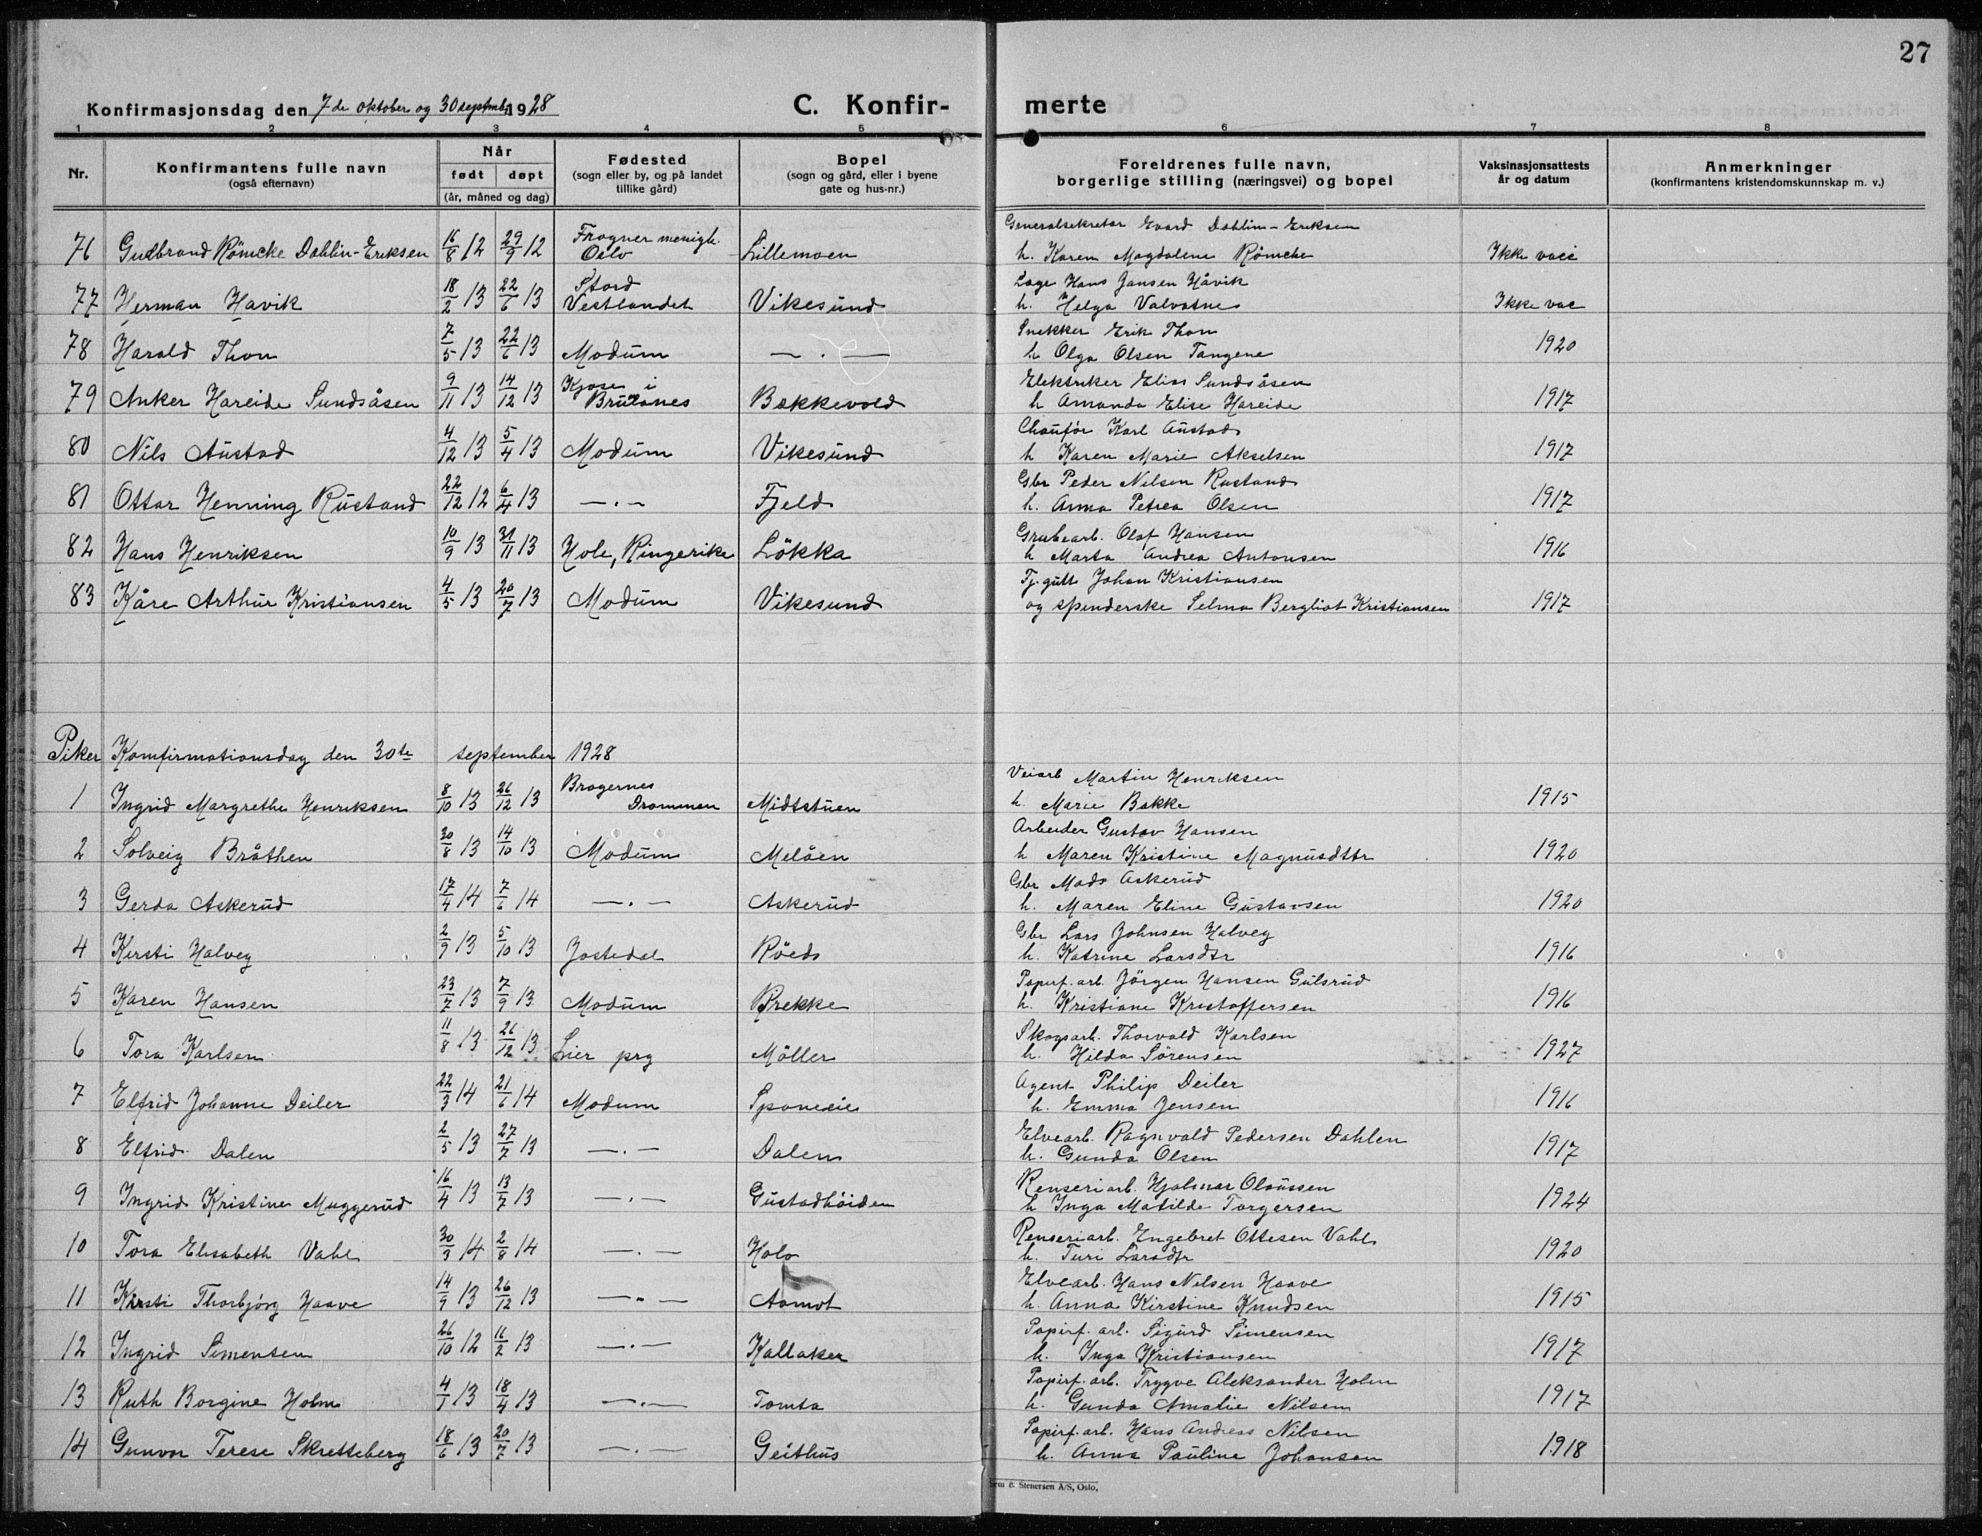 27
Konfirmasjonsdag den 7de oktober og 30 septmb. 1928 C. Konfir- merte
1 2 3 4 5 6 7 8
Nr. Konfirmantens fulle navn (også efternavn) Når født døpt (år, måned og dag) Fødested (sogn eller by, og på landet tillike gård) Bopel (sogn og gård, eller i byene gate og hus-nr.) Foreldrenes fulle navn, borgerlige stilling (næringsvei) og bopel Vaksinasjonsattests år og datum Anmerkninger (konfirmantens kristendomskunnskap m. v.)
Frogner menigh. Generalsekretær Evard Dahlin-Eriksen
76 Gudbrand Römcke Dahlin-Eriksen 16/8 12 29/9 12 Oslo Lillemoen h. Karen Magdalene Römcke Ikke vacc
Stord Læge Hans Jansen Håvik
77 Herman Havik 18/2 13 22/6 13 Vestlandet Vikesund h. Helga Valvatne Ikke vac
Snekker Erik Thon
78 Harald Thon 7/5 13 22/6 13 Modum — . — h Olga Olsen Tangene 1920
Kjose i Elektriker Elias Sundsåsen
79 Anker Hareide Sundsåsen 9/11 13 14/12 13 Brulanes Bakkevold h Amanda Elise Hareide 1917
Chauför Karl Austad
80 Nils Austad 4/12 13 5/4 13 Modum Vikesund h Karen Marie Akselsen 1917
Gbr Peder Nilsen Rustand
81 Ottar Henning Rustand 22/12 12 6/4 13 — . — Fjeld h. Anna Petrea Olsen 1917
Grubearb. Olaf Hansen
82 Hans Henriksen 10/9 13 31/11 13 Hole, Ringerike Lökka h Marta Andrea Antonsen 1916
Tj.gutt Johan Kristiansen
83 Kåre Arthur Kristiansen 4/5 13 20/7 13 Modum Vikesund og spinderske Selma Bergliot Kristiansen 1917
Piker Komfirmationsdag den 30te september 1928
Bragernes Veiarb Martin Henriksen
1 Ingrid Margrethe Henriksen 8/10 13 26/12 13 Drammen Midtstuen h. Marie Bakke 1915
Arbeider Gustav Hansen
2 Solveig Bråthen 30/8 13 14/10 13 Modum Melåen h Maren Kristine Magnusdttr 1920
Gbr Mads Askerud
3 Gerda Askerud 17/4 14 7/6 14 — . — Askerud h. Maren Eline Gustavsen 1920
Gbr Lars Johnsen Halveg
4 Kersti Halveg 2/9 13 5/10 13 Jostedal Röeds h. Katrine Larsdtr 1916
Papirf. arb. Jörgen Hansen Gulsrud
5 Karen Hansen 23/7 13 7/9 13 Modum Brekke h. Kristiane Kristoffersen 1916
Skogsarb. Thorvald Karlsen
6 Tora Karlsen 11/8 13 26/12 13 Lier prg Möller h. Hilda Sörensen 1927
Agent Philip Deiler
7 Elfrid Johanne Deiler 22/3 14 21/6 14 Modum Sponeeie h. Emma Jensen 1916
Elvearb. Ragnvald Pedersen Dahlen
8 Elfrid Dalen 2/5 13 27/7 13 — . — Dalen h. Gunda Olsen 1917
Renseriarb. Hjalmar Olaussen
9 Ingrid Kristine Muggerud 16/4 13 13/7 13 — . — Gustadhöiden h Inga Matilde Torgersen 1924
Renseriarb. Engebret Ottesen Vahl
10 Tora Elisabeth Vahl 30/3 14 2/8 14 — . — Holo h. Turi Larsdtr 1920
Elvearb. Hans Nilsen Haave
11 Kirsti Thorbjörg Haave 14/9 13 26/12 13 — . — Aamot h. Anna Kirstine Knudsen 1915
Papirf. arb. Sigurd Simensen
12 Ingrid Simensen 26/10 12 16/2 13 — . — Kallaker h. Inga Kristiansen 1917
Papirf. arb. Trygve Aleksander Holm
13 Ruth Borgine Holm 4/1 13 18/4 13 — . — Tomta h. Gunda Amalie Nilsen 1917
Papirf. arb. Hans Andreas Nilsen
14 Gunvor Terese Skretteberg 18/6 13 20/7 13 — . — Geithus h. Anna Pauline Johansen 1918
Stenersen A/S, Oslo.